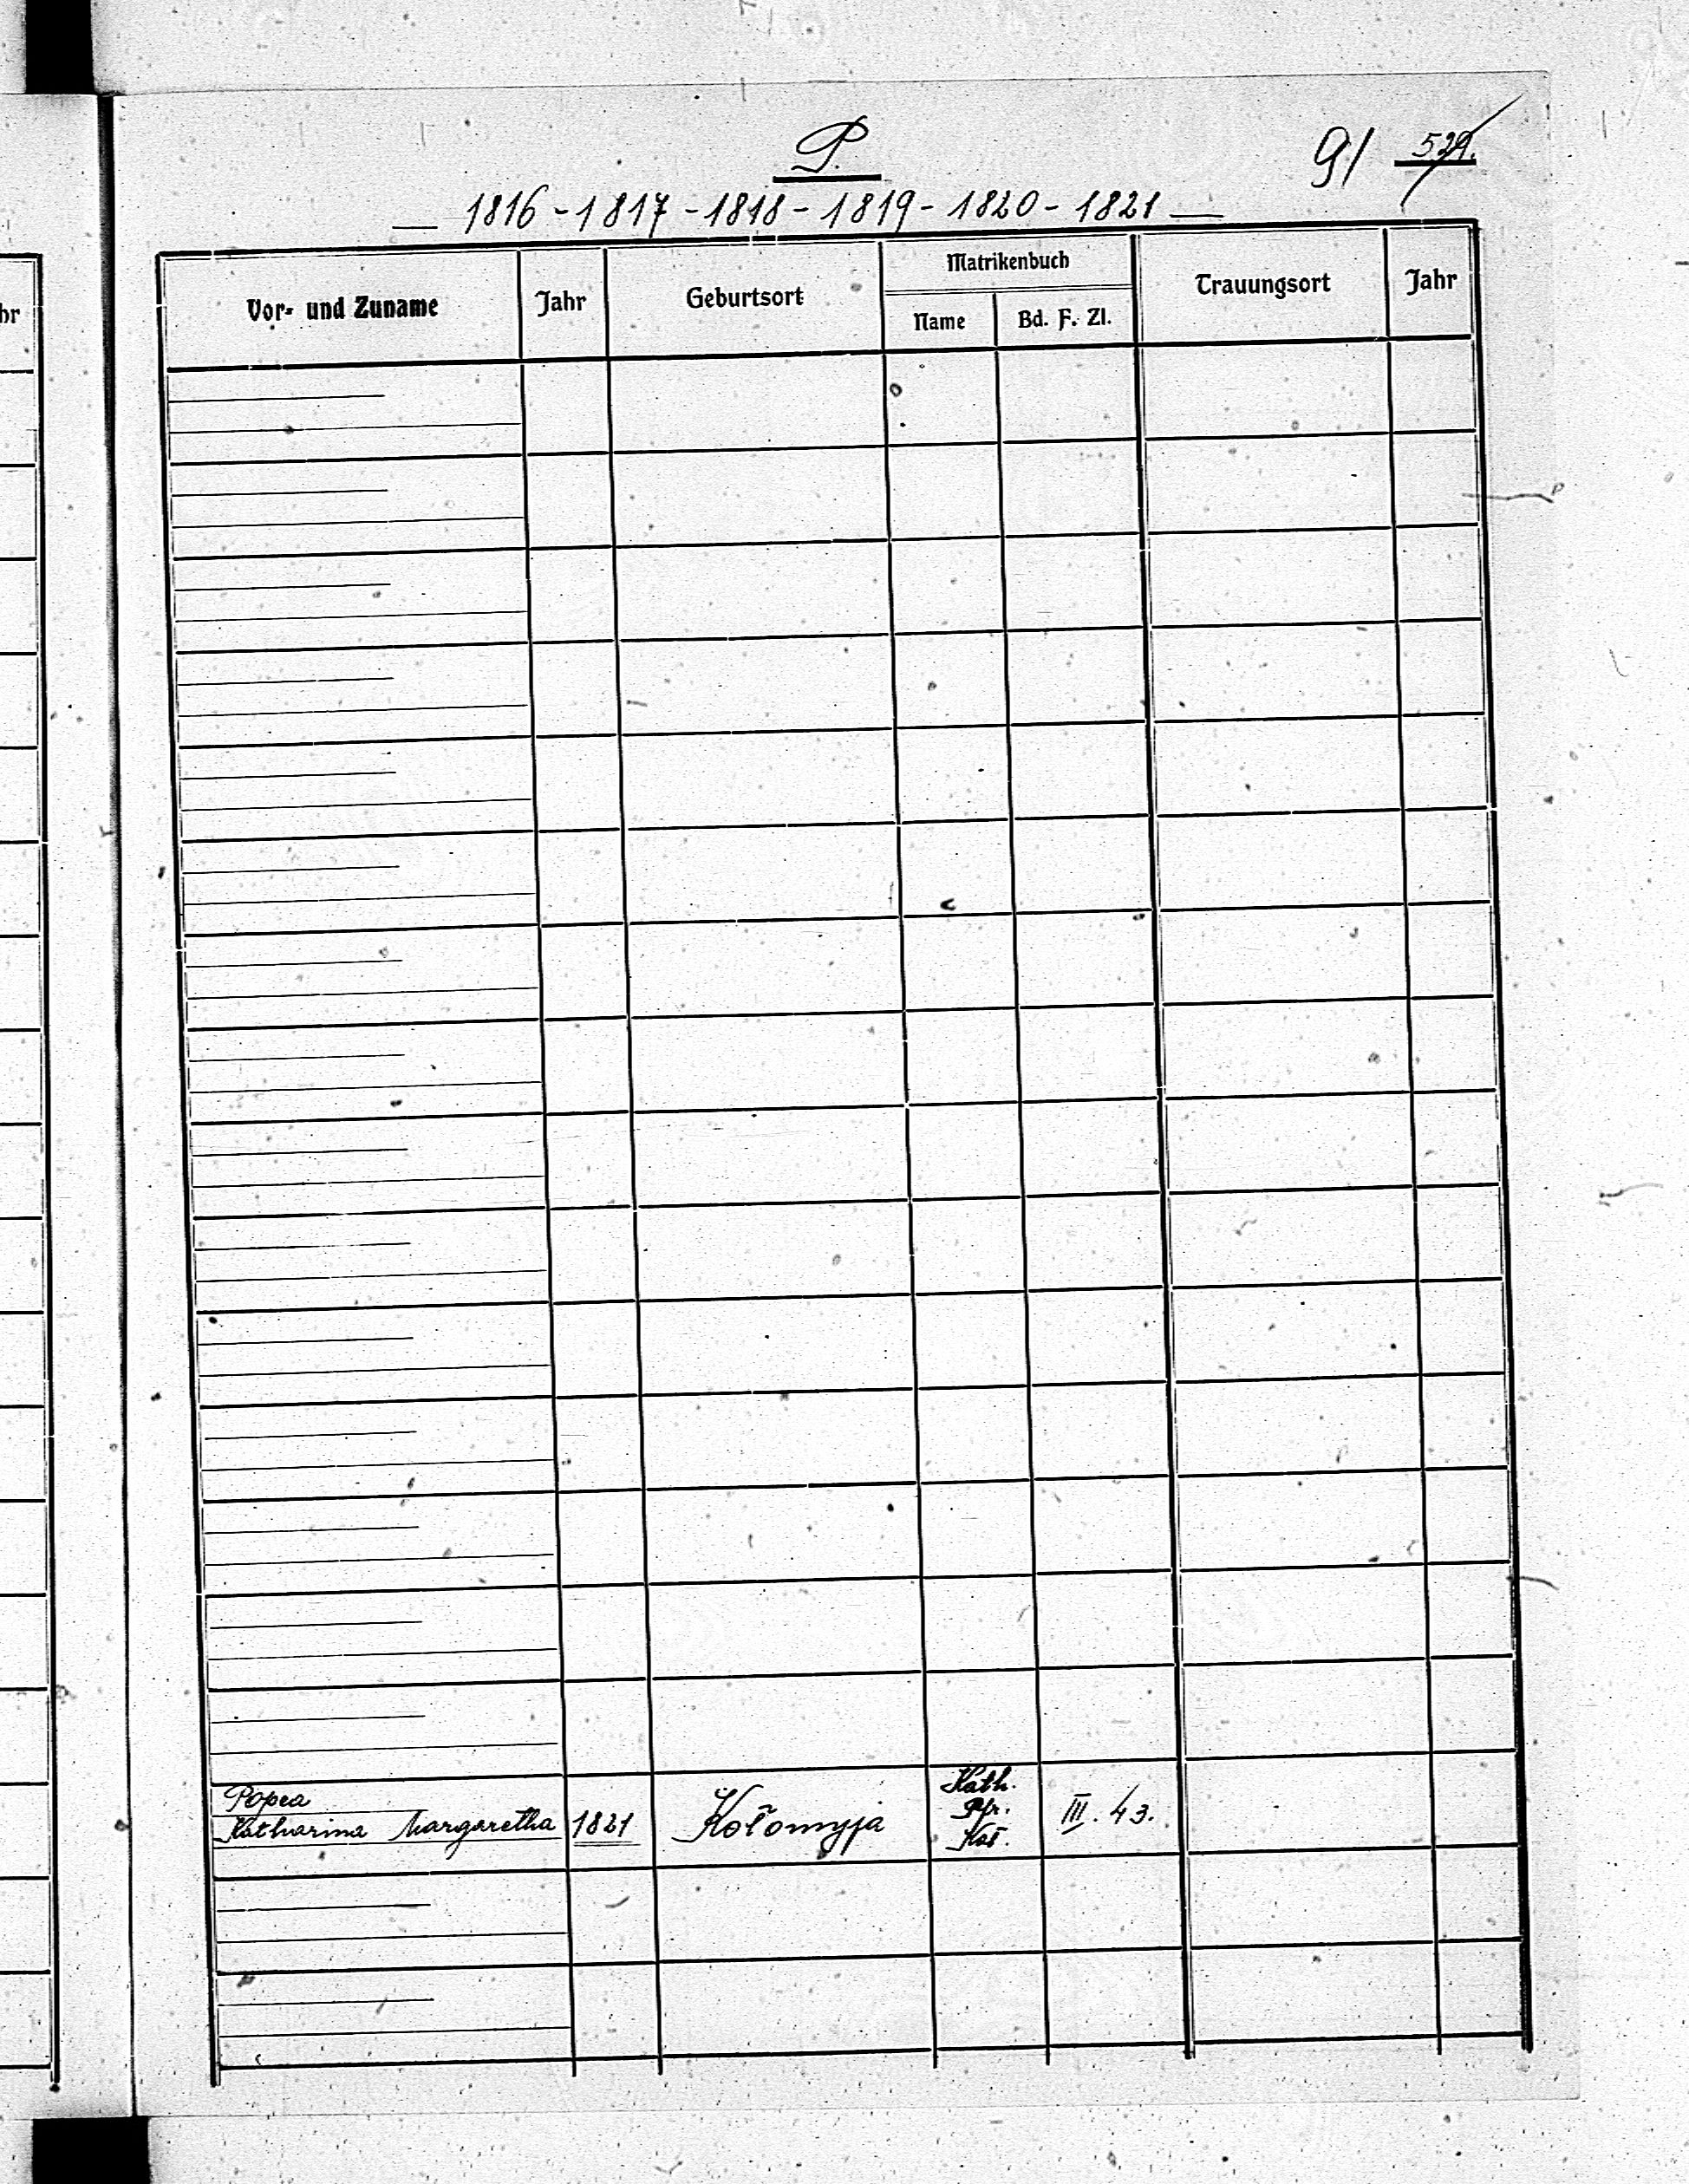 P.
91
1816 - 1817 - 1818 - 1819 - 1820 - 1821
Vor- und Zuname
Jahr
Geburtsort
Matrikenbuch
Name
Bd. F. Zl.
Trauungsort
Jahr
Popea
Katharina Margaretha
1821
Kołomyja
Kath.
Pfr.
Koł.
III. 43.
hr